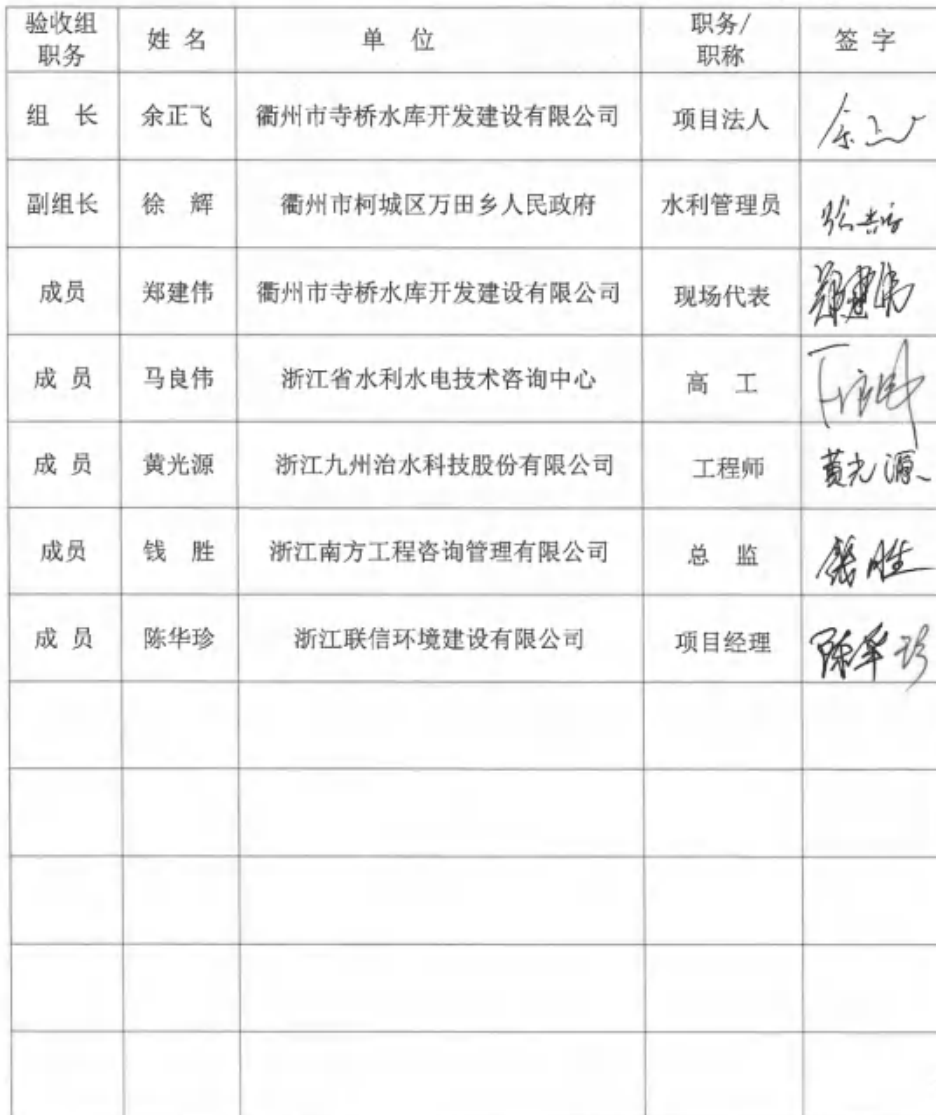 验收组职务 姓 名 单 位 职务/职称 签 字
组 长 余正飞 衢州市寺桥水库开发建设有限公司 项目法人
副组长 徐 辉 衢州市柯城区万田乡人民政府 水利管理员
成员 郑建伟 衢州市寺桥水库开发建设有限公司 现场代表 郑建伟
成 员 马良伟 浙江省水利水电技术咨询中心 高 工
成 员 黄光源 浙江九州治水科技股份有限公司 工程师 黄光源
成员 钱 胜 浙江南方工程咨询管理有限公司 总 监 钱胜
成 员 陈华珍 浙江联信环境建设有限公司 项目经理 陈华珍